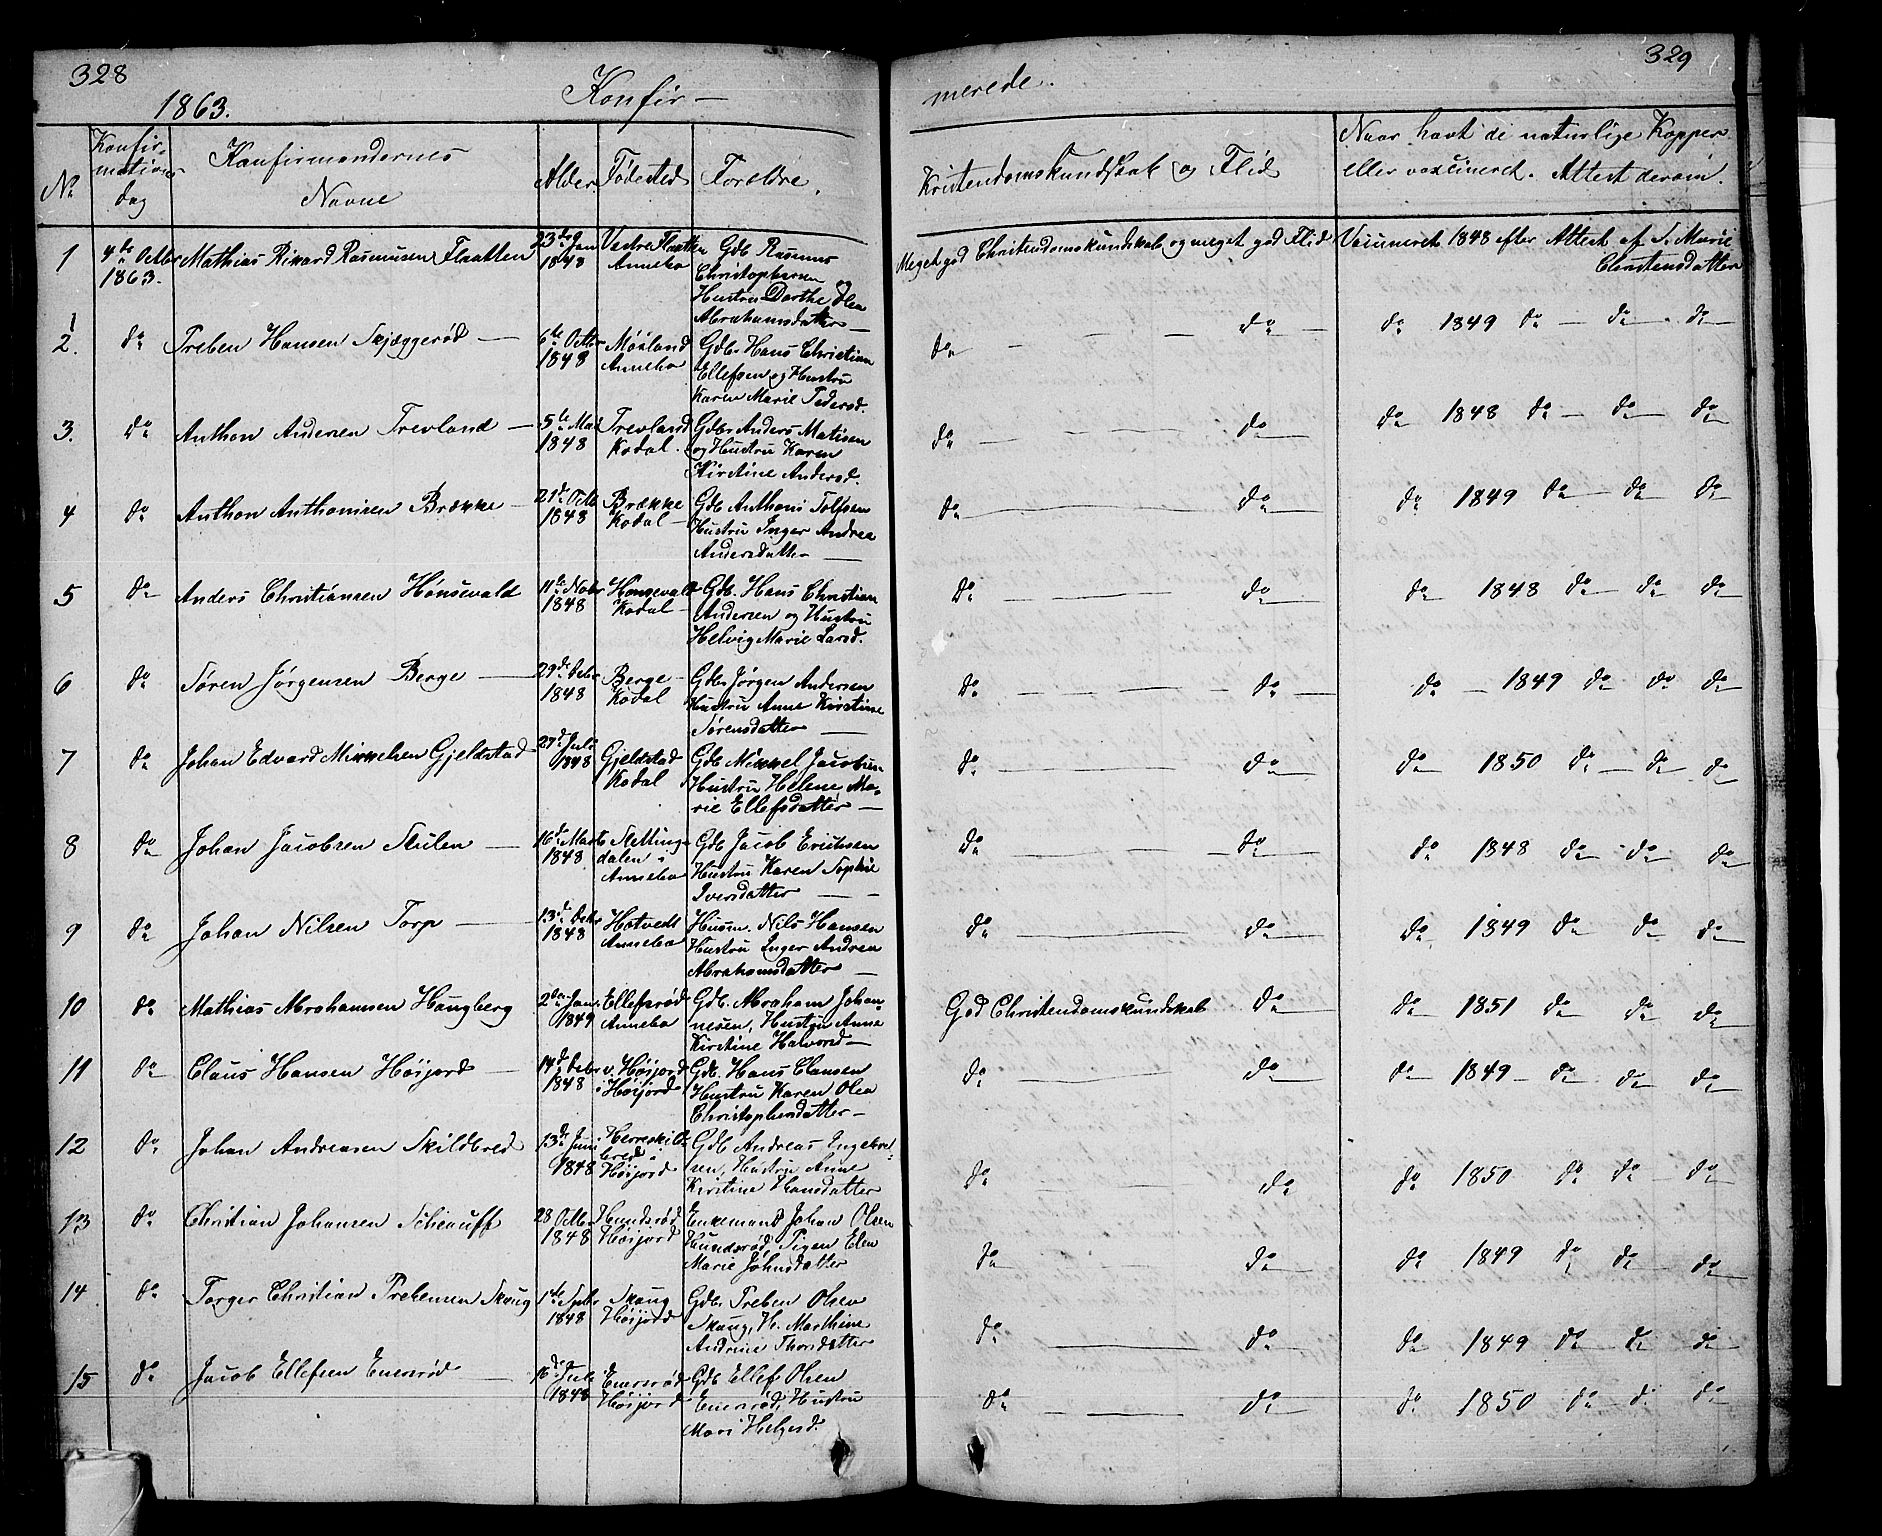 328
1863.
Konfir-
No
Konfir-
mations
dag
Konfirmandernes
Navne
Alder
Fødested
Forældre.
1
4de Octbr
1863.
Mathias Rikard Rasmussen Flaatten
23de Jan
1848
Vestre Flaatten
Annebo
Gdb. Rasmus
Christophersen
Hustru Dorthe Olea
Abrahamsdatter
2.
do
Preben Hansen Skjæggerød
6te Octbr
1848
Møiland
Annebo
Gdbr Hans Christian
Ellefsen og Hustru
Karen Marie Pedersd.
3.
do
Anthon Andersen Trevland
5te Mai
1848
Trevland
Kodal.
Gdbr Anders Matisen
og Hustru Karen
Kirstine Andersd.
4
do
Anthon Anthonisen Brække
21de Octb
1848
Brække
Kodal
Gdb Anthoni Tolfsen
Hustru Inger Andrea
Andersdatter
5
do
Anders Christiansen Hønsevald
11te Nobr
1848
Hønsevald
Kodal
Gdb. Hans Christian
Andersen og Hustru
Helvig Marie Larsd.
6
do
Søren Jørgensen Berge
29de Debr
1848
Berge
Kodal
Gdb. Jørgen Andersen
Hustru Anne Kirstine
Sørensdatter
7
do
Johan Edvard Mikkelsen Gjeldstad
27d Juli
1848
Gjeldstad
Kodal
Gdb Mikkel Jacobsen
Hustru Helene Ma-
rie Ellefsdatter
8
do
Johan Jacobsen Stulen
16de Marts
1848
Slettings
dalen i
Annebo
Gdb Jacob Erichsen
Hustru Karen Sophie
Iversdatter
9
do
Johan Nilsen Torp
13de Debr
1848
Hotvedt
Annebo
Husm. Nils Hansen
Hustru Inger Andrea
Abrahamsdatter
10
do
Mathias Abrahamsen Haugberg
2den Jan.
1849
Ellefsrød
Annebo
Gdb. Abraham Johan-
nesen, Hustru Anne
Kirstine Halvorsd
11
do
Claus Hansen Høijord
14de Debr
1848
v. Høijord
i Høijord
Gdb. Hans Clausen
Hustru Karen Olea
Christophersdatter
12
do
Johan Andreasen Skildbred
13de Juni
1848
Herreskild-
bred i
Høijord
Gdb Andreas Ingebret-
sen, Hustru Anne
Kirstine Hansdatter
13
do
Christian Johansen Schauff
28 Octbr
1848
Hundsrød
Høijord
Enkemand Johan Olsen
Hundsrød, Pigen Elen
Marie Johnsdatter
14
do
Torger Christian Prebensen Skaug
1ste Septbr
1848
Skaug
Høijord
Gdb. Preben Olsen
Skaug, H. Marthine
Andrine Thorsdatter
15
do
Jacob Ellefsen Enersrød
16de Juli
1848
Enersrød
Høijord
Gdb Ellef Olsen
Enersrød, Hustru
Mari Helgesd.
329
merede.
Kristendomskundskab og Flid
Naar havt de naturlige Kopper
eller vaxcineret. Attest derom.
Meget god Christendomskundskab og meget god Flid
Vaccineret 1848 efter Attest af S. Marie
Christensdatter
do do do 1849 do do do
do do do 1848 do do do
do do do 1849 do do do
do do do 1848 do do do
do do do 1849 do do do
do do do 1850 do do do
do do do 1848 do do do
do do do 1849 do do do
God Christendomskundskab do do 1851 do do do
do do do 1849 do do do
do do do 1850 do do do
do do do 1849 do do do
do do do 1849 do do do
do do do 1850 do do do